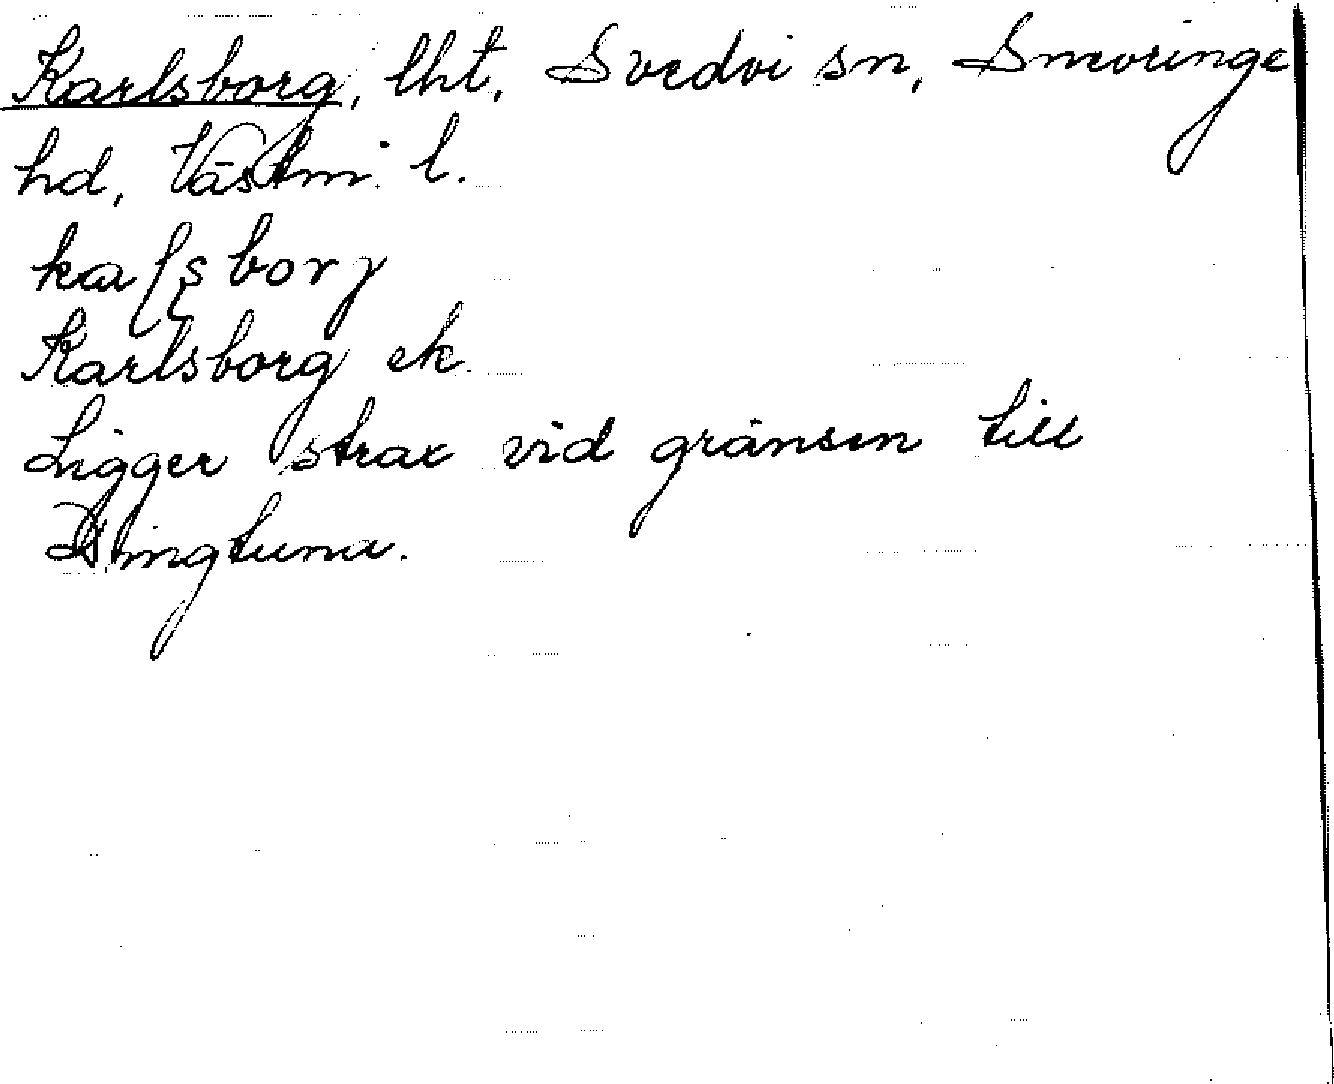 Karlsborg, lht, Svedvi sn, Snevringe
hd, Västm. l.
kaʃsborj
Karlsborg ek.
Ligger strax vid gränsen till
Dingtuna.